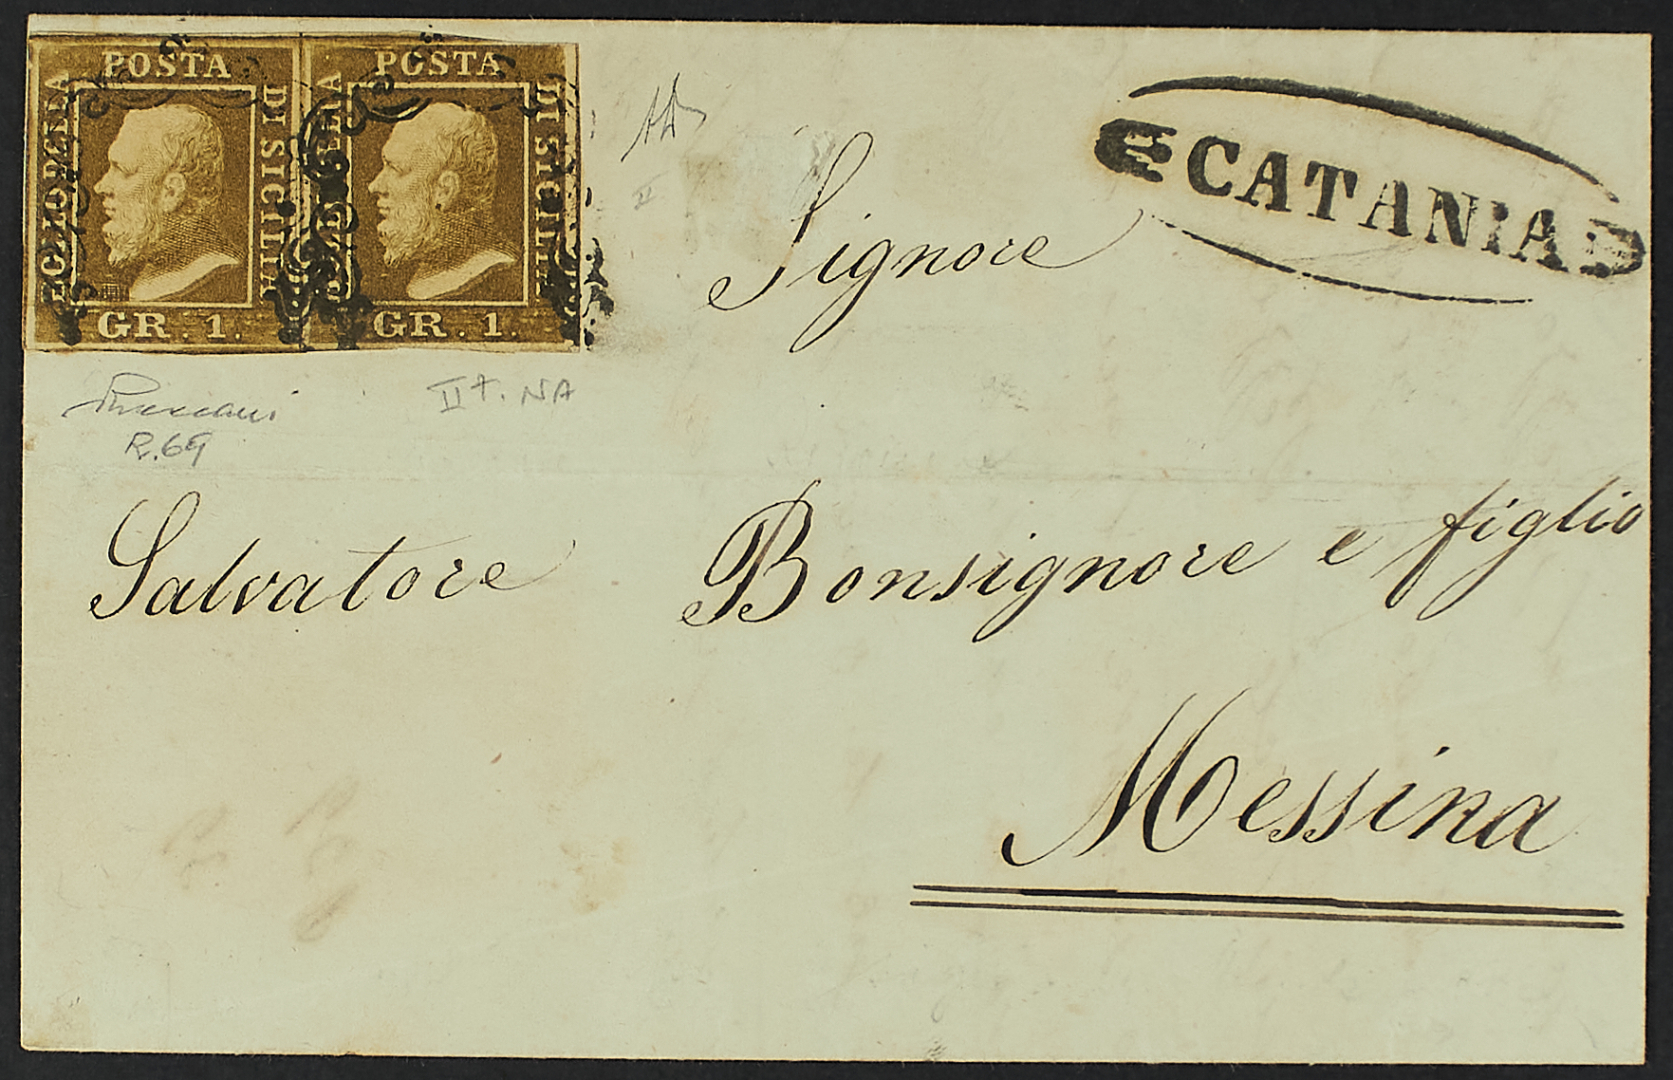 POSTA POSTA
BOLLO DELLA DI SICILIA BOLLO DELLA DI SICILIA
GR. 1. GR. 1.
CATANIA
Signore
II
II t. NA
R.69
Salvatore Bonsignore e figlio
Messina